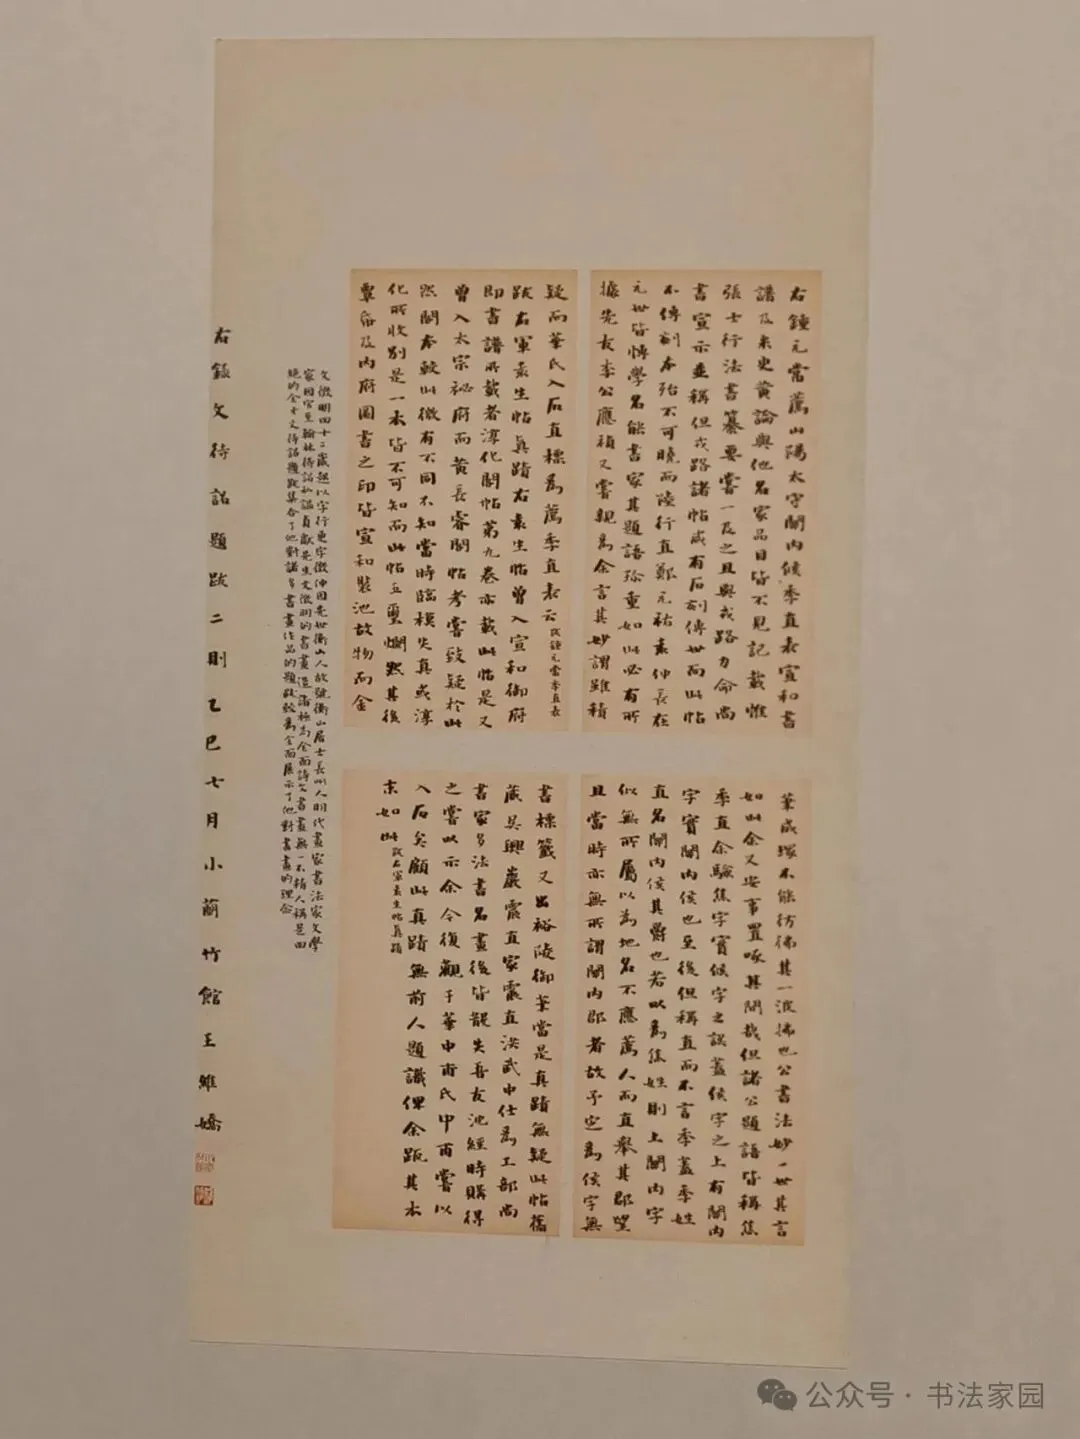 右鍾元常薦山陽太守關內候季直表宣和書
譜及米史黃論與他名家品目皆不見記載惟
張士行法書纂要嘗一及之且與戎路力命尚
書宣示並稱但戎路諸帖咸有石刻傳世而此帖
不傳刻本殆不可曉而陸行直鄭元祐袁仲長在
元世皆博學名能書家其題語珍重如此必有所
據先友李公應禎又嘗親為余言其妙謂雖積
筆成塚不能彷彿其一波拂也公書法妙一世其言
如此余又安事置啄其間哉但諸公題語皆稱焦
季直余驗焦字實候字之誤蓋侯字之上有關內
字實關內侯也至後但稱直而不言季蓋季姓
直名關內侯其爵也若以為焦姓則上關內字
似無所屬以為地名不應薦人而直舉其郡望
且當時亦無所謂關內郡者故予定為侯字無
疑而華氏入石直標為薦季直表云 跋鍾元常季直表
跋右軍袁生帖真蹟右袁生帖曾入宣和御府
即書譜所載者淳化閣帖第九卷亦載此帖是又
曾入太宗祕府而黃長睿閣帖考嘗致疑於此
然閣本較此微有不同不知當時臨模失真或淳
化所收別是一本皆不可知而此帖五璽爛然其後
覃帋及內府圖書之印皆宣和裝池故物而金
書標籤又出裕陵御筆當是真蹟無疑此帖舊
藏吳興嚴震直家震直洪武中仕為工部尚
書家多法書名畫後皆散失吾友沈經時購得
之嘗以示余今復觀于華中甫氏中甫嘗以
入石矣顧此真蹟無前人題識俾余疏其本
末如此 跋右軍袁生帖真蹟
文徵明四十二歲起以字行更字徵仲因先世衡山人故號衡山居士長州人明代畫家書法家文學
家因官至翰林待詔私謚貞獻先生文徵明的書畫造詣極為全面詩文書畫無一不精人稱是四
絕的全才文待詔題跋集合了他對諸多書畫作品的題跋較為全面展示了他對書畫的理念
右錄文待詔題跋二則乙巳七月小蘭竹館王維嬌
公众号·书法家园